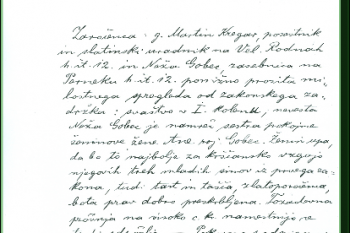 Zaročenca: g. Martin Kregar, posestnik
in slatinski uradnik na Vel. Rodnah
h. št. 12. in Neža Gobec zasebnica na
h. št. 12. ponižno prosita mi-
lostnega spregleda od zakonskega za-
držka: svaštvo v I. kolenu, nevesta
Neža Gobec je namreč sestra pokojne
ženinove žene Ane roj. Gobec. Ženin upa,
da bo to najbolje za krščansko vzgojo
njegovih treh mladih sinov iz prvega za-
kona, tudi tast in tašča, zlatoporočenca,
bota prav dobro preskrbljena. Tozadevna
prošnja na visoko c. k. namestnijo se